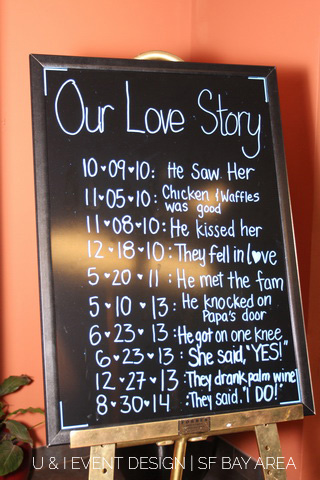 Our Love Story
10♥09♥10: He Saw Her
11♥05♥10: Chicken & Waffles
was good
11♥08♥10: He kissed her
12♥18♥10: They fell in l♥ve
5♥20♥11: He met the fam
5♥10♥13: He knocked on
Papa's door
6♥23♥13: He got on one knee
6♥23♥13: She said, "YES!"
12♥27♥13: They drank palm wine!
8♥30♥14: They said, "I DO!"
U & I EVENT DESIGN | SF BAY AREA